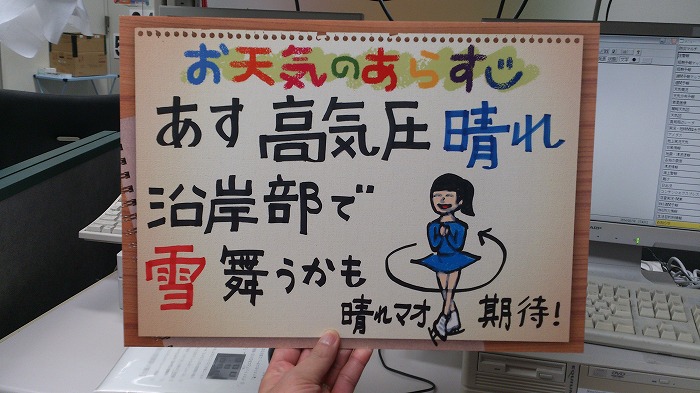 お天気のあらすじ
あす 高気圧 晴れ
沿岸部で
雪 舞うかも
晴れマオ 期待!